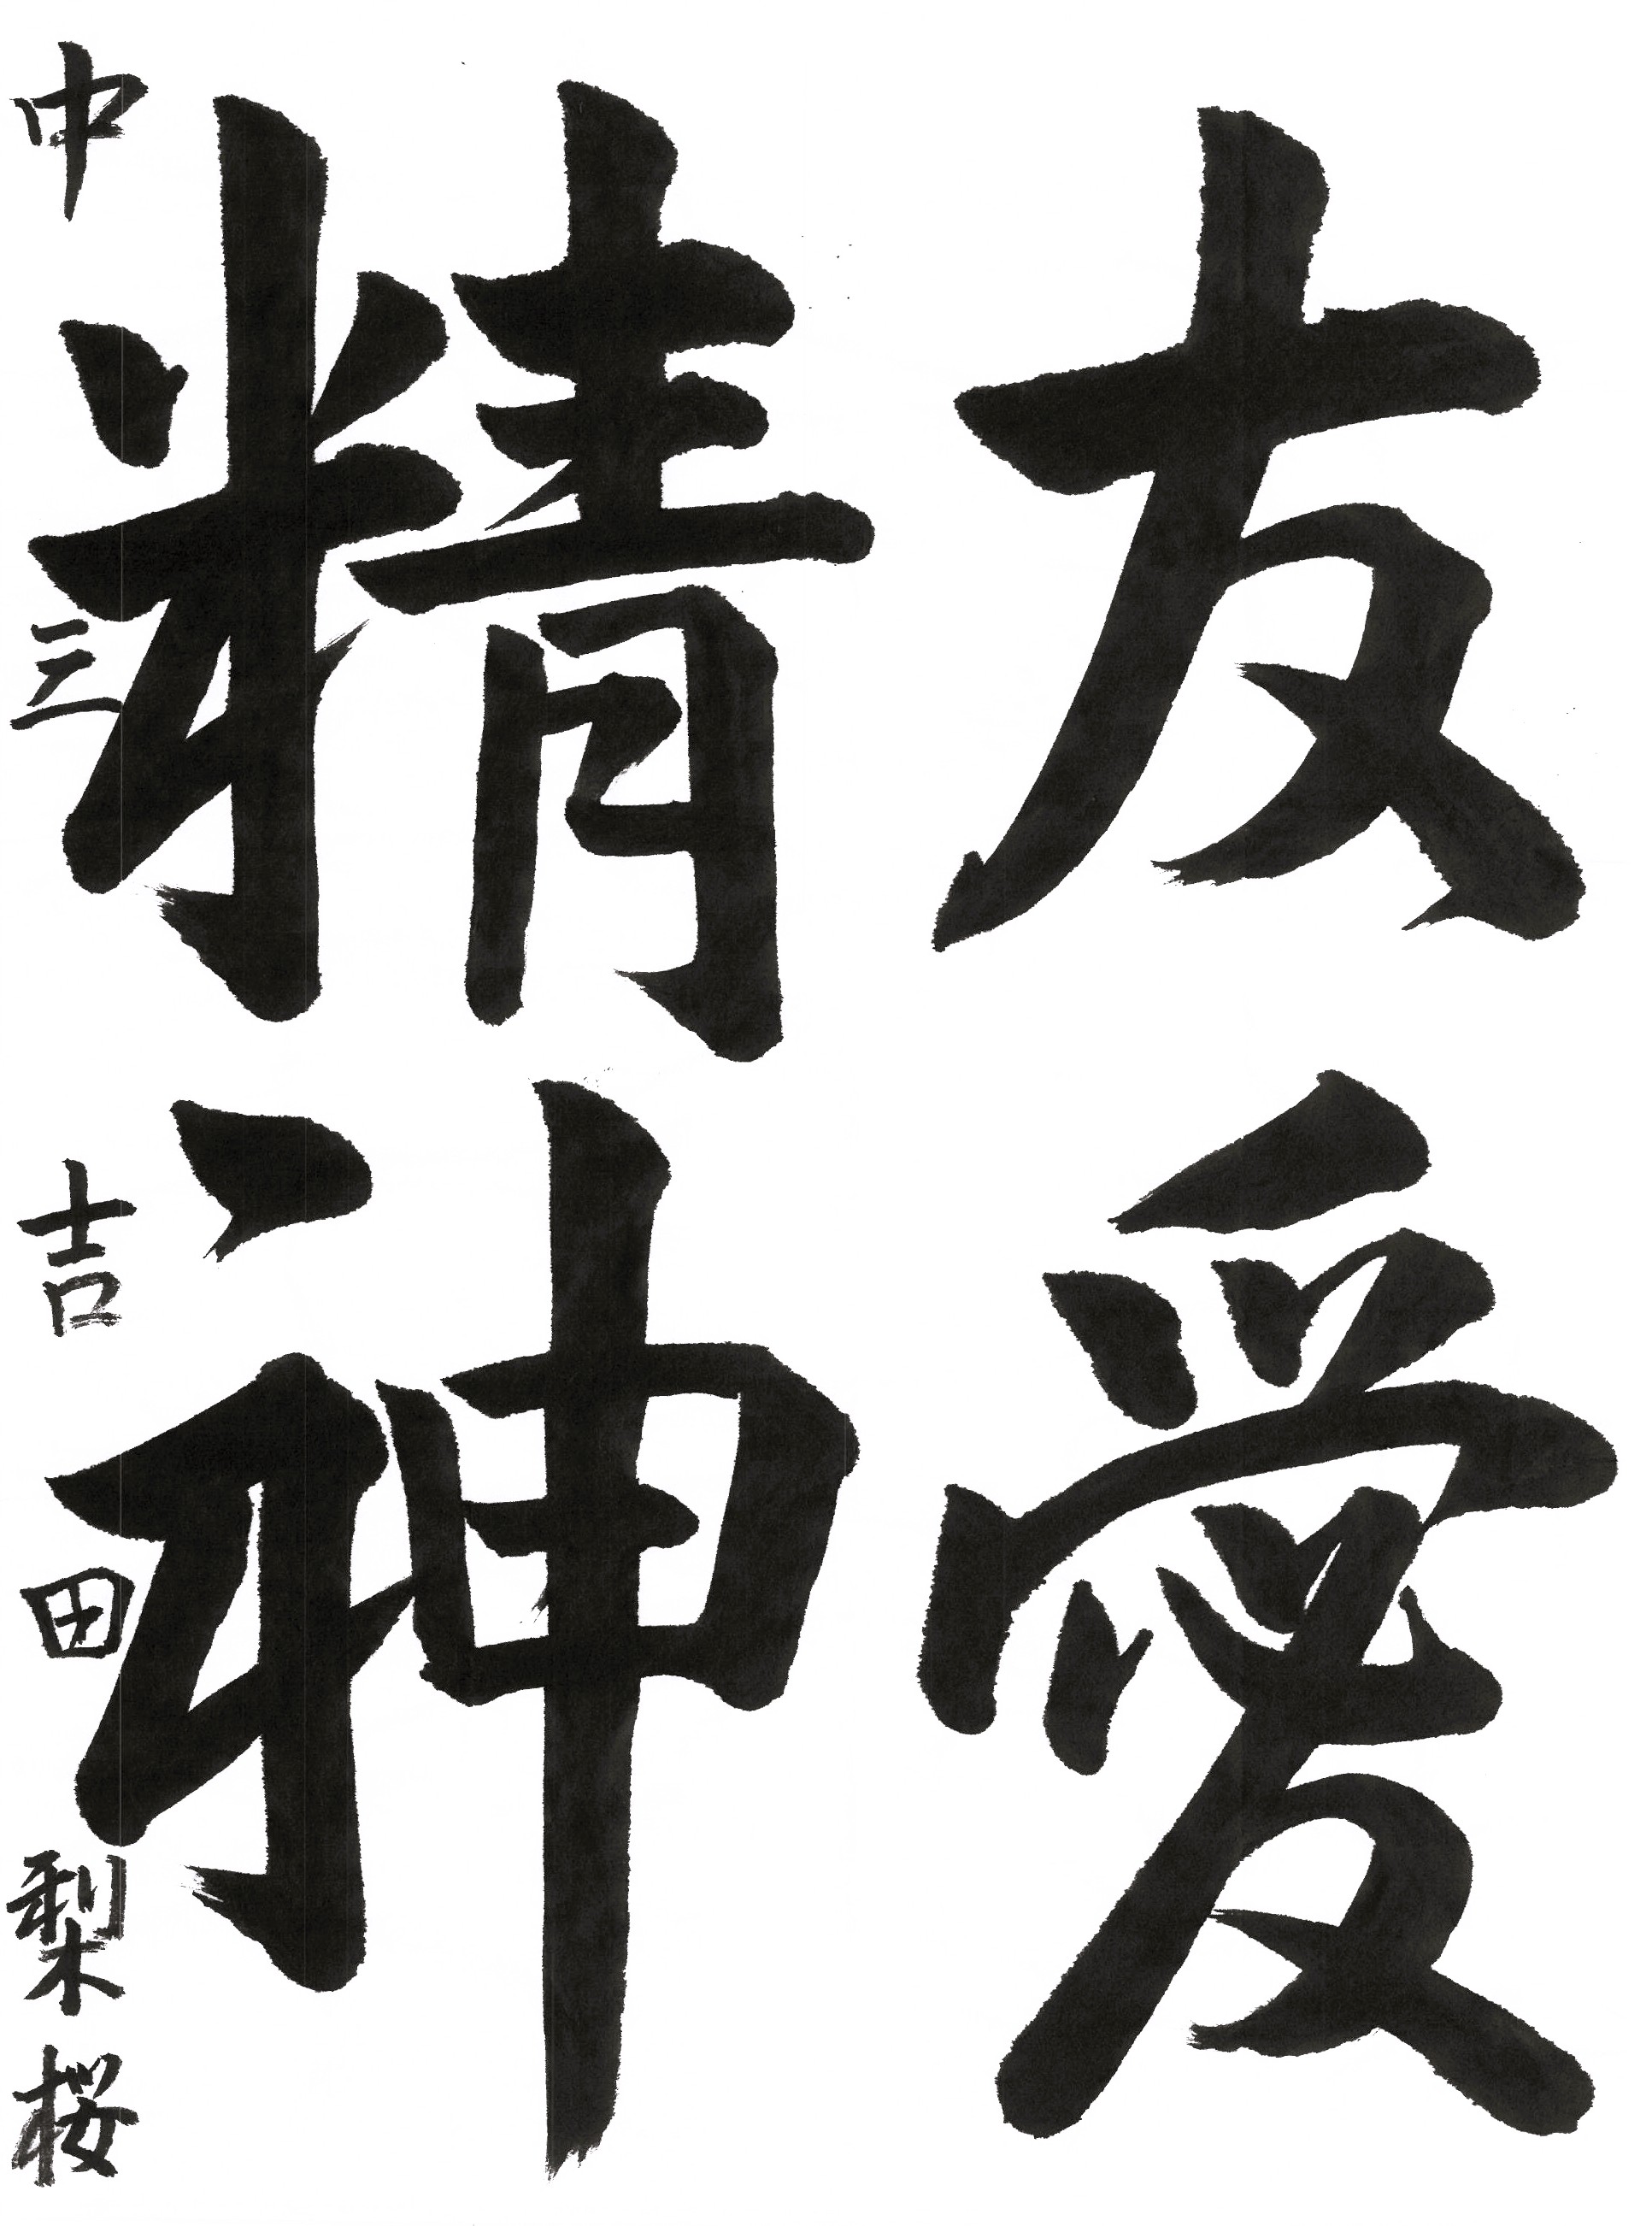 友愛
精神
中三 吉田梨桜